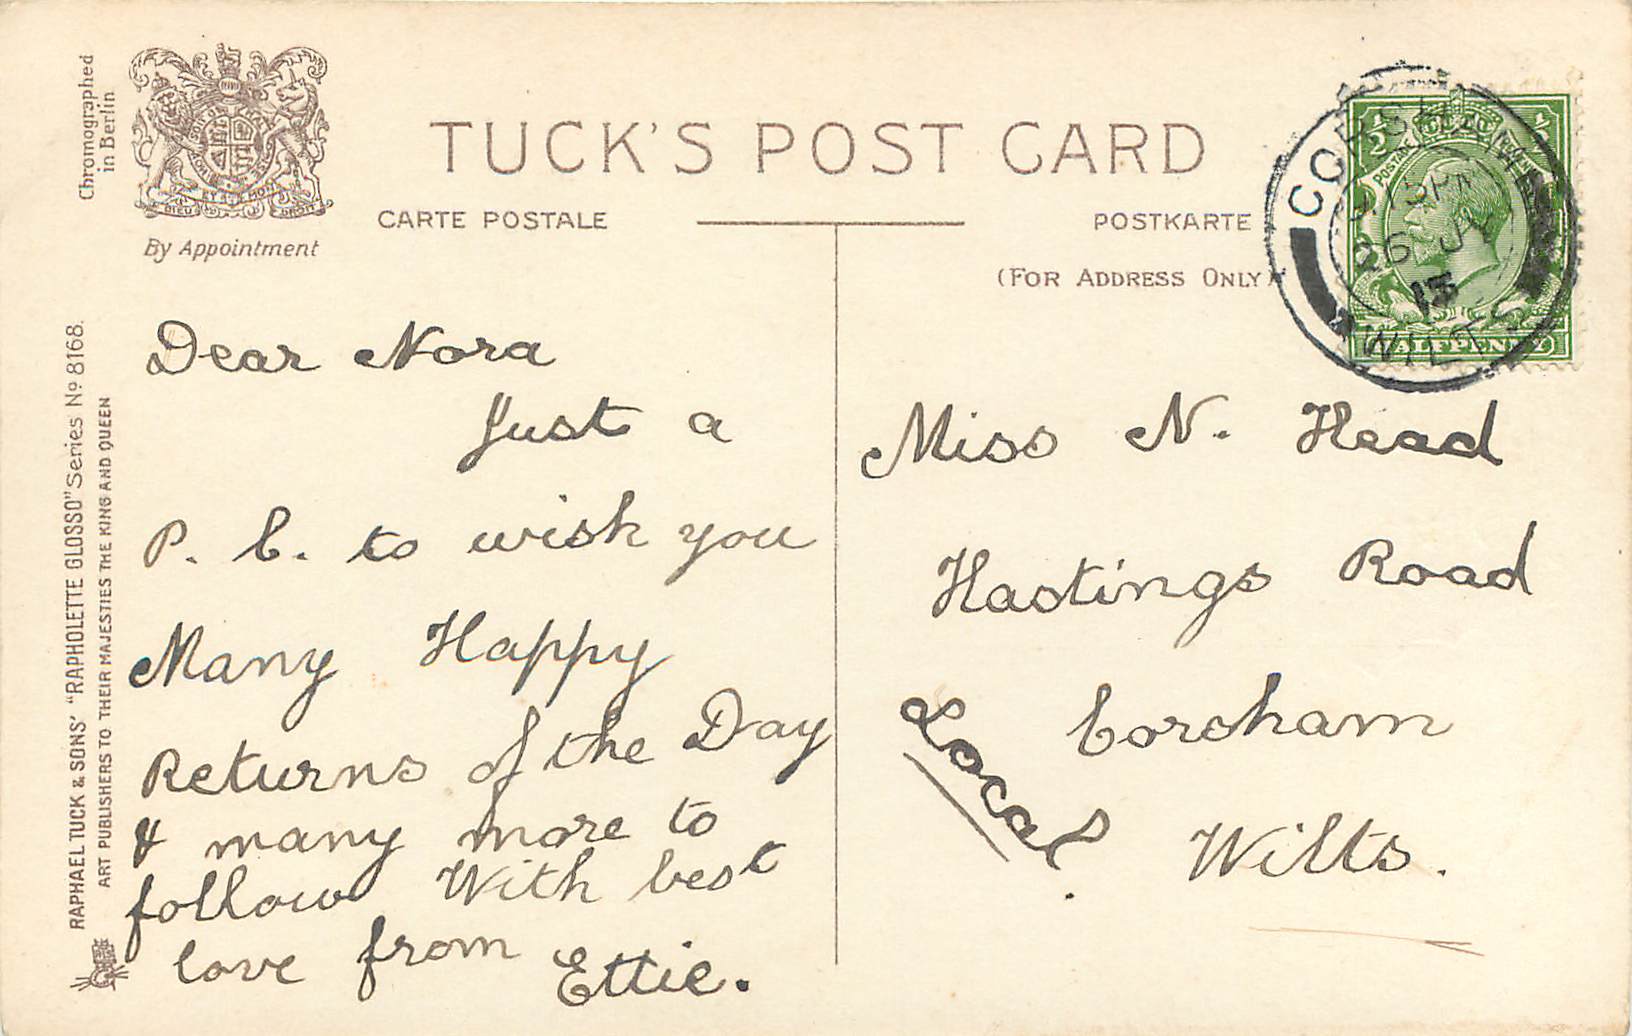 Chromographed
in Berlin
DIEU ET MON DROIT
By Appointment
TUCK'S POST CARD
CARTE POSTALE
POSTKARTE
(FOR ADDRESS ONLY)
RAPHAEL TUCK & SONS' "RAPHOLETTE GLOSSO" Series Nº 8168.
ART PUBLISHERS TO THEIR MAJESTIES THE KING AND QUEEN
Dear Nora
Just a
P. C. to wish you
Many Happy
Returns of the Day
& many more to
follow With best
love from Ettie.
Miss N. Head
Hastings Road
Corsham
Wilts.
Local.
CORSHAM
15 PM
26 JY
13
WILTS
½ ½
POSTAGE
HALFPENNY